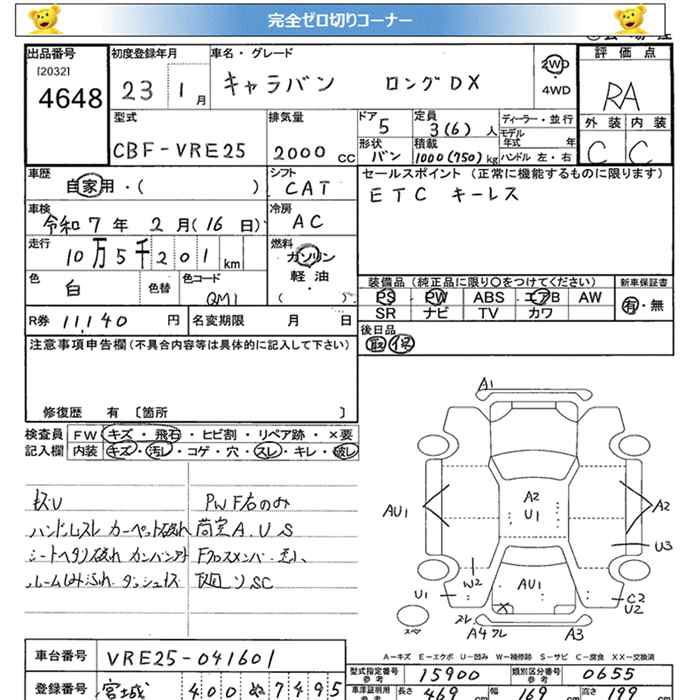 完全ゼロ切りコーナー
出品番号 初度登録年月 車名・グレード 評価点
[2032]
4648 23 1月 キャラバン ロングDX 2WD・4WD RA
型式 排気量 ドア 5 定員 3(6)人 ディーラー・並行 外装 内装
モデル年式 年
CBF-VRE25 2000cc 形状 バン 積載 1000(750)kg ハンドル 左・右 C C
車歴 シフト セールスポイント(正常に機能するものに限ります)
自家用・( ) CAT ETC キーレス
車検 冷房
令和7年2月(16日) AC
走行 燃料
10万5千201km ガソリン
軽油
・
( )
色 白 色替 色コード QM1
装備品(純正品に限り○をつけてください) 新車保証書
PS PW ABS エアB AW 有・無
SR ナビ TV カワ
R券 11,140円 名変期限 月 日
後日品
取 保
注意事項申告欄(不具合内容等は具体的に記入して下さい)
修復歴 有 〔箇所 〕
検査員 FW キズ・飛石・ヒビ割・リペア跡・×要
記入欄 内装 キズ・汚レ・コゲ・穴・スレ・キレ・破レ
キズU PWF右のみ
ハンドルスレ カーペット破れ 荷室A.U.S
シートヘタリ破れ
A1
A2
U1
AU1
A2
U3
W2
AU1
U1
C2
U2
スレ
A4 ワレ
A3
A-キズ E-エクボ U-凹み W-補修跡 S-サビ C-腐食 XX-交換済
車台番号 VRE25-041601
型式指定番号 参考 15900 類別区分番号 参考 0655
登録番号 宮城 400 ぬ 7495
車庫証明用 参考 長さ 469 幅 169 高さ